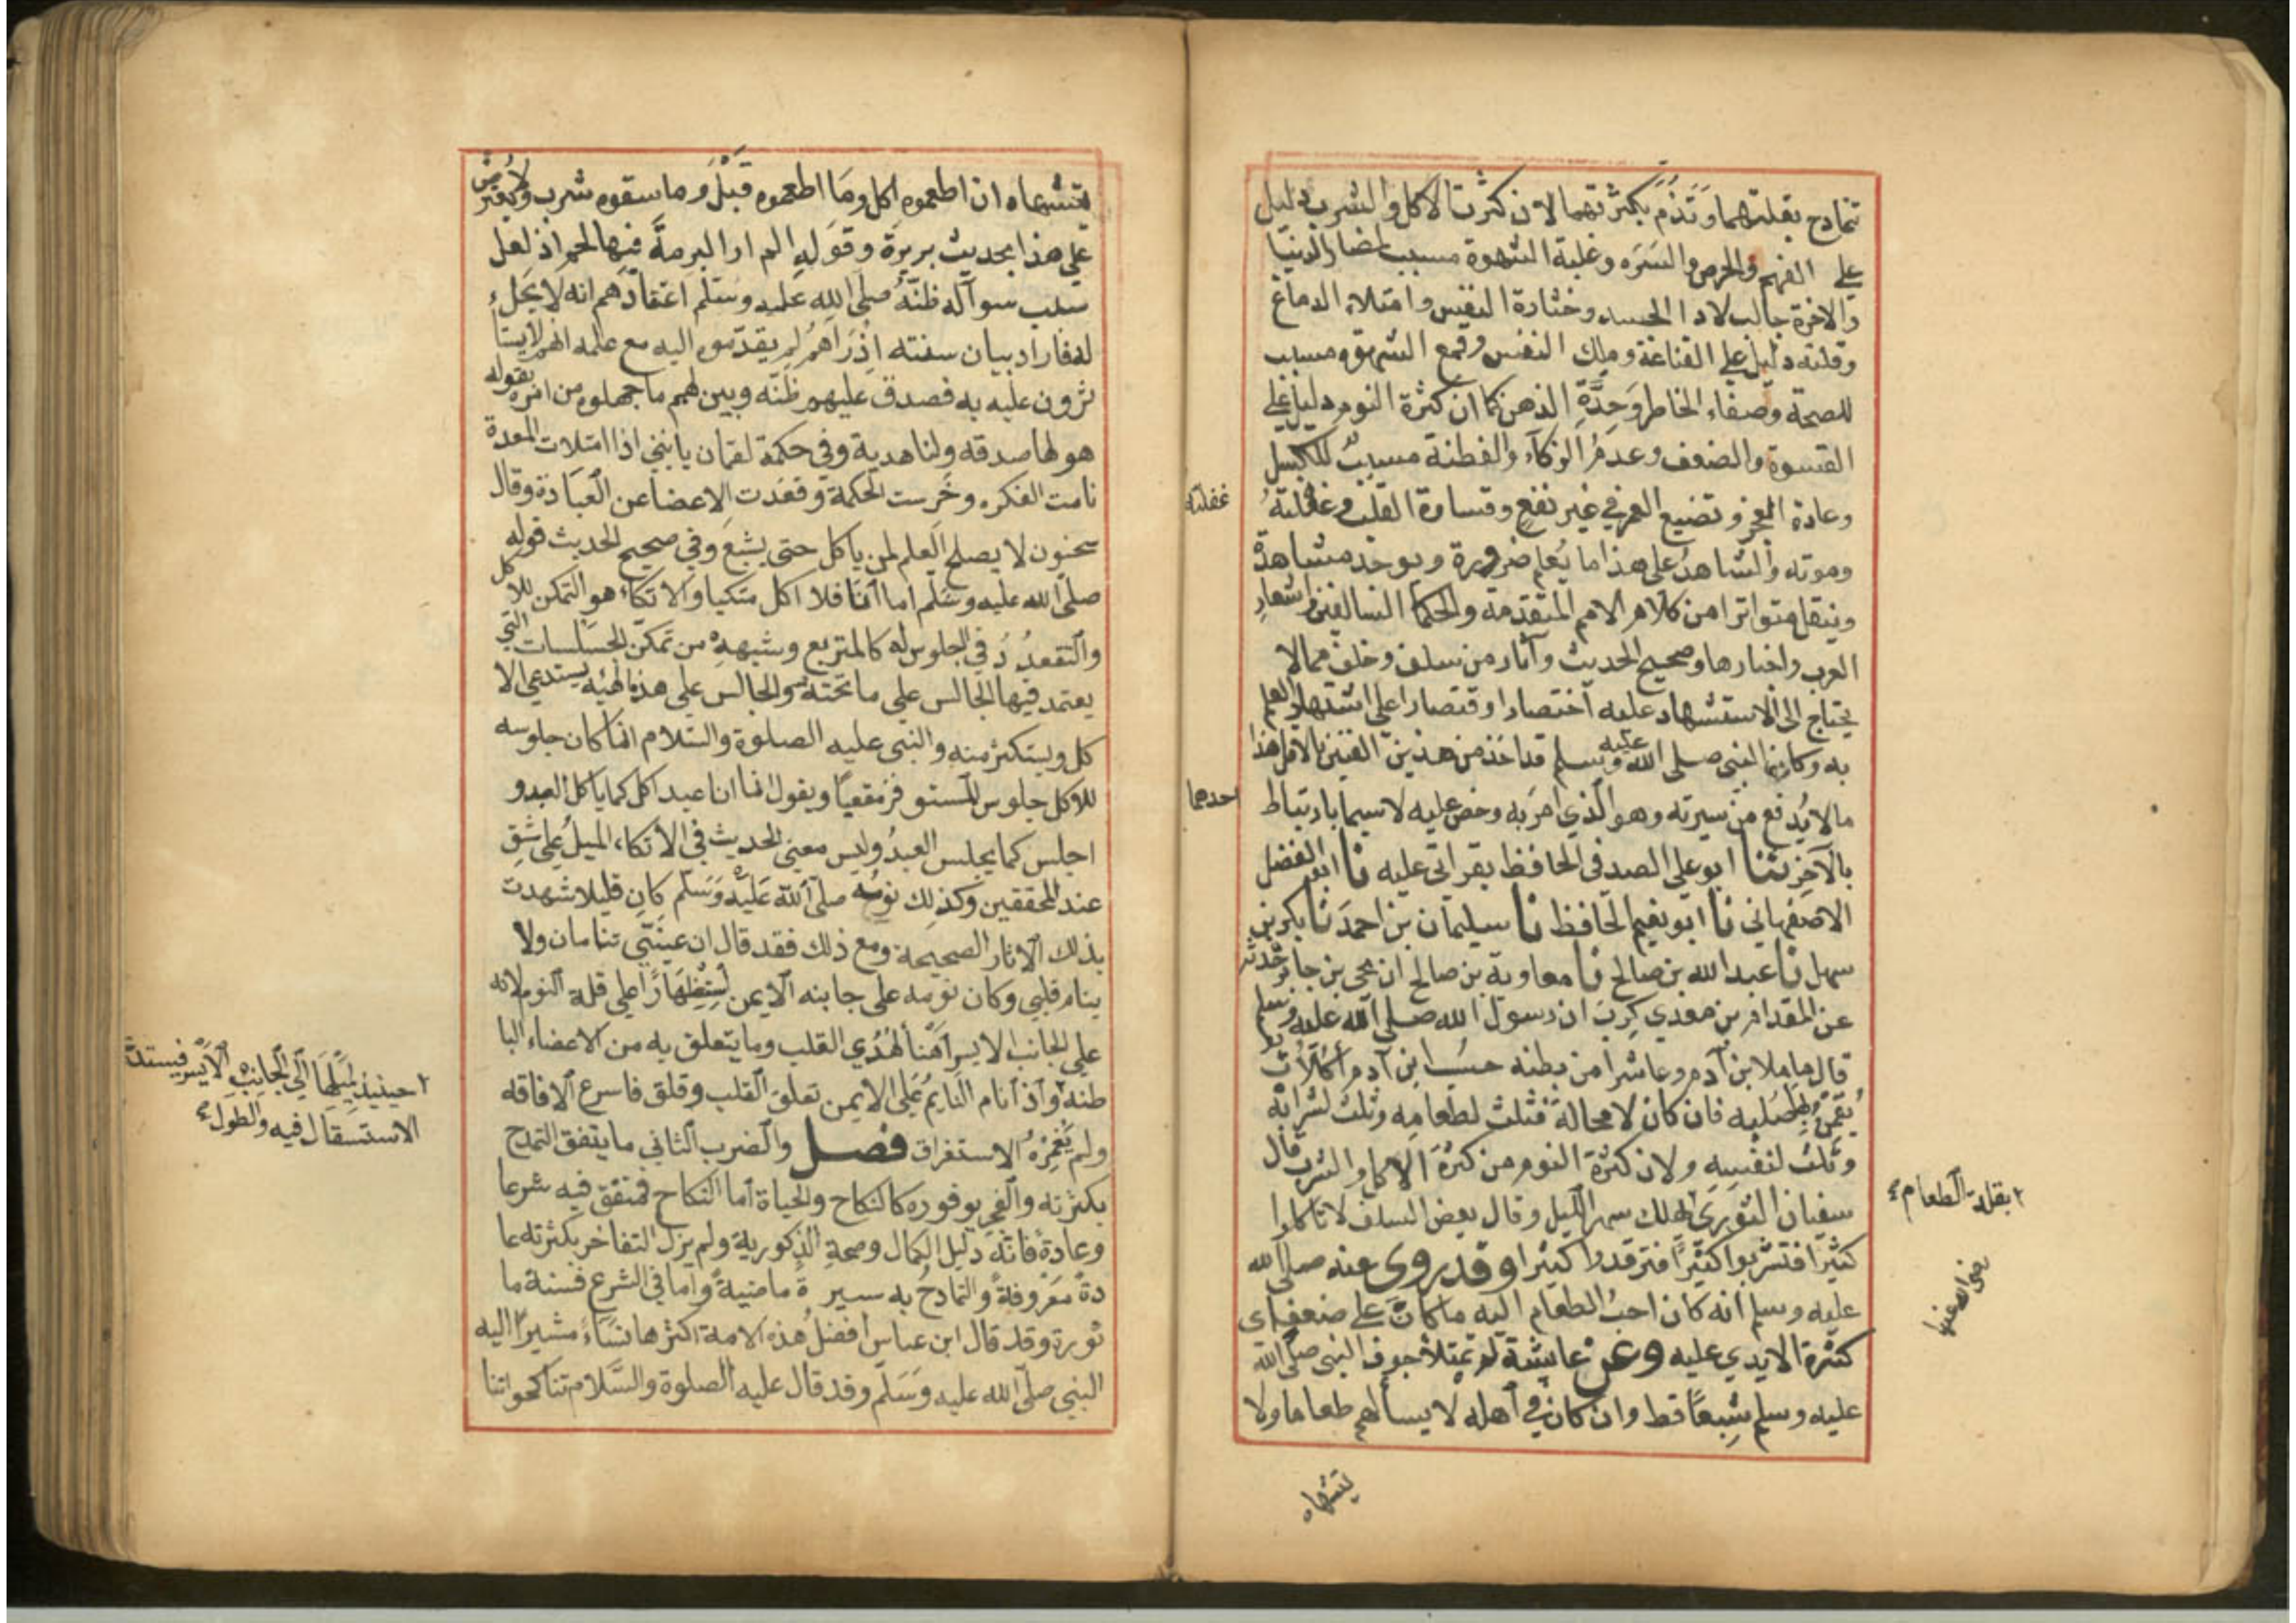 تتمادح بقلتهما وتذم بكثرتهما لان كثرت الاكل والشرب دليل
على النهم والحرص والشره وغلبة الشهوة مسبب لمضار الدنيا
والاخرة جالب لادا الجسد وخثارة النفس وامتلاء الدماغ
وقلته دليل على القناعة وملك النفس وقمع الشهوه مسبب
للصحة وصفاء الخاطر وحدة الذهن كما ان كثرة النوم دليل على
الفسوة والضعف وعدم الذكاء والفطنة مسبب للكسل
وعادة العجز وتضيع العمر في غير نفع وقساوة القلب وغفلته
غفلته
وموته والشاهد على هذا ما يعلم ضرورة ويوجد مشاهدة
وينقل متواترا من كلام الامم المتقدمة والحكما السالفين واشعار
العرب واخبارها وصحيح الحديث وآثار من سلف وخلف مما لا
يحتاج الى الاستشهاد عليه اختصارا وقتصارا على اشتهار العلم
به وكان النبي صلى الله عليه وسلم قد اخذ من هذين الفنين بالاقل هذا
حدهما
ما لا يدفع من سيرته وهو الذي امر به وحض عليه لا سيما بارتباط
بالآخر ثنا ابو علي الصدفي الحافظ بقراتي عليه نا ابو الفضل
الاصفهاني نا ابو نعيم الحافظ نا سليمان بن احمد نا بكر بن
سهل نا عبد الله بن صالح نا معاوية بن صالح ان يحيى بن جابر حدثه
عن المقدام بن معدي كرب ان رسول الله صلى الله عليه وسلم
قال ما ملا ابن آدم وعا شرا من بطنه حسب ابن آدم أكلات
يقمن صلبه فان كان لا محالة فثلث لطعامه وثلث لشرابه
وثلث لنفسه ولان كثرة النوم من كثرة الاكل والشرب قال
سفيان الثوري يملك سهر الليل وقال بعض السلف لا تاكلوا
بقلة الطعام
كثيرا فتشربوا كثيرا فترقدوا كثيرا وقد روى عنه صلى الله
عليه وسلم انه كان احب الطعام اليه ما كان على ضعف اي
كثرة الايدي عليه وعن عايشة لم يمتلأ جوف النبي صلى الله
رضى الله عنها
عليه وسلم شبعا قط وان كان في اهله لا يسألهم طعاما ولا
يتشهاه
يتشهاه ان اطعموه اكل وما اطعموه قبل وما سقوه شرب ولا يعترض
على هذا بحديث بريرة وقوله الم ار البرمة فيها لحم اذ لعل
سبب سوآله ظنه صلى الله عليه وسلم اعتقادهم انه لا يحل
له فاراد بيان سنته اذ رآهم لم يقدموه اليه مع علمه انهم لا يستأ
ثرون عليه به فصدق عليهم ظنه وبين لهم ما جهلوه من امره بقوله
هو لها صدقه ولنا هدية وفي حكمة لقمان يا بني اذا امتلات المعدة
نامت الفكره وخرست الحكمة وقعدت الاعضا عن العبادة وقال
سحنون لا يصلح العلم لمن ياكل حتى يشبع وفي صحيح الحديث قوله
صلى الله عليه وسلم اما انا فلا اكل متكيا والاتكاء هو التمكن للاكل
والتقعدد في الجلوس له كالمتربع وشبهه من تمكن الجلسات التي
يعتمد فيها الجالس على ما تحته والجالس على هذه الهيئه يستدعي الا
كل ويستكثر منه والنبي عليه الصلوة والسلام انما كان جلوسه
للاكل جلوس المستوفز مقعيا ويقول انما انا عبد اكل كما ياكل العبد و
اجلس كما يجلس العبد وليس معنى الحديث في الاتكاء الميل على شق
عند المحققين وكذلك نومه صلى الله عليه وسلم كان قليلا شهدت
بذلك الآثار الصحيحة ومع ذلك فقد قال ان عيني تنامان ولا
ينام قلبي وكان نومه على جابنه الايمن استظهارا على قلة النوم لانه
على الجانب الايسر اهنأ لهدي القلب وما يتعلق به من الاعضاء البا
طنه واذا نام النايم على الايمن تعلق القلب وقلق فاسرع الافاقه
حينيذ لميلها الى الجانب الايسر فيستد
الاستسقال فيه والطول
ولم يغمره الاستغراق فصل والضرب الثاني ما يتفق التمدح
بكثرته والفخر بوفوره كالنكاح والحياة اما النكاح فمتفق فيه شرعا
وعادة فانه دليل الكمال وصحة الذكورية ولم يزل التفاخر بكثرته عا
دة معروفة والتمادح به سيرة ماضية واما في الشرع فسنة ما
ثورة وقد قال ابن عباس افضل هذه الامة اكثرها نساء مشيرا اليه
النبي صلى الله عليه وسلم وقد قال عليه الصلوة والسلام تناكحوا تنا